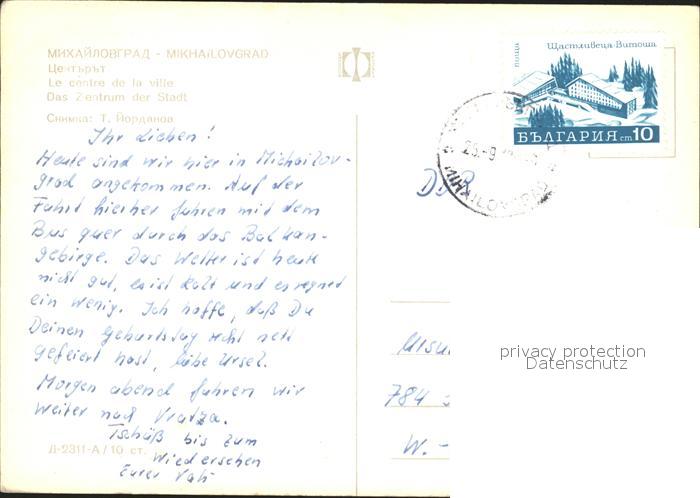 МИХАЙЛОВГРАД - MIKHAILOVGRAD
Центърът
Le centre de la ville
Das Zentrum der Stadt
Снимка: Т. Йорданов
Ihr Lieben!
Heute sind wir hier in Michailov-
grad angekommen. Auf der
Fahrt hierher fuhren mit dem
Bus quer durch das Balkan-
gebirge. Das Wetter ist heute
nicht gut, es ist kalt und es regnet
ein wenig. Ich hoffe, daß Du
Deinen Geburtstag recht nett
gefeiert hast, liebe Ursel.
Morgen abend fahren wir
weiter nach Vratza.
Tschüß bis zum
Wiedersehen
Eurer Vati
Д-2311-А/10 ст.
поща
Щастливеца-Витоша
БЪЛГАРИЯ ст 10
MIKHAILOVGRAD
DDR
784
W.-
privacy protection
Datenschutz